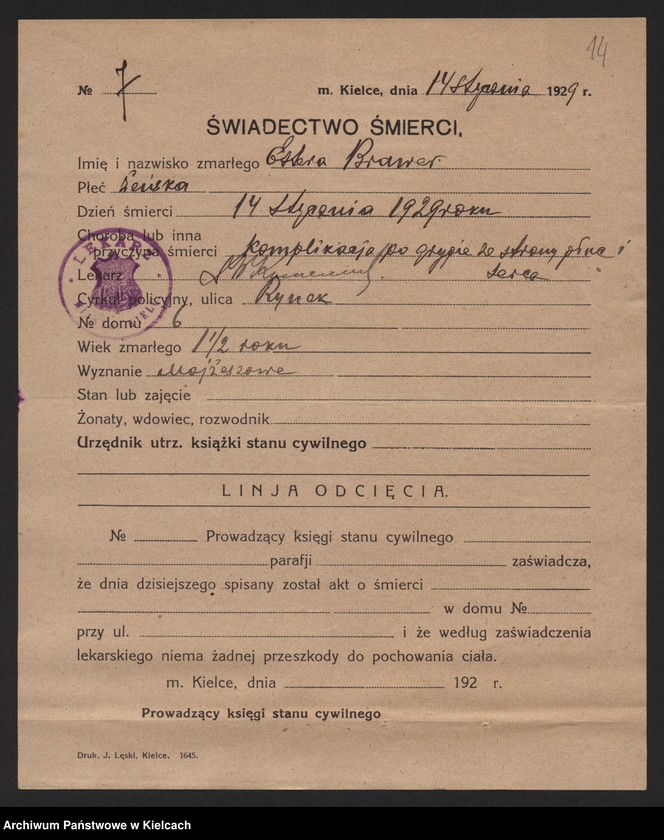 14
№ 7 m. Kielce, dnia 14 stycznia 1929 r.
ŚWIADECTWO ŚMIERCI.
Imię i nazwisko zmarłego Estera Brawer
Płeć żeńska
Dzień śmierci 14 stycznia 1929 roku
Choroba lub inna
przyczyna śmierci komplikacja po grypie ze strony płuc i
serca
Lekarz
LEKARZ
Cyrkuł policyjny, ulica Rynek
№ domu 6
Wiek zmarłego 1 1/2 roku
Wyznanie Mojżeszowe
Stan lub zajęcie
Żonaty, wdowiec, rozwodnik
Urzędnik utrz. książki stanu cywilnego
LINJA ODCIĘCIA.
№ Prowadzący księgi stanu cywilnego
parafji zaświadcza,
że dnia dzisiejszego spisany został akt o śmierci
w domu №
przy ul. i że według zaświadczenia
lekarskiego niema żadnej przeszkody do pochowania ciała.
m. Kielce, dnia 192 r.
Prowadzący księgi stanu cywilnego
Druk. J. Łęski, Kielce. 1645.
Archiwum Państwowe w Kielcach